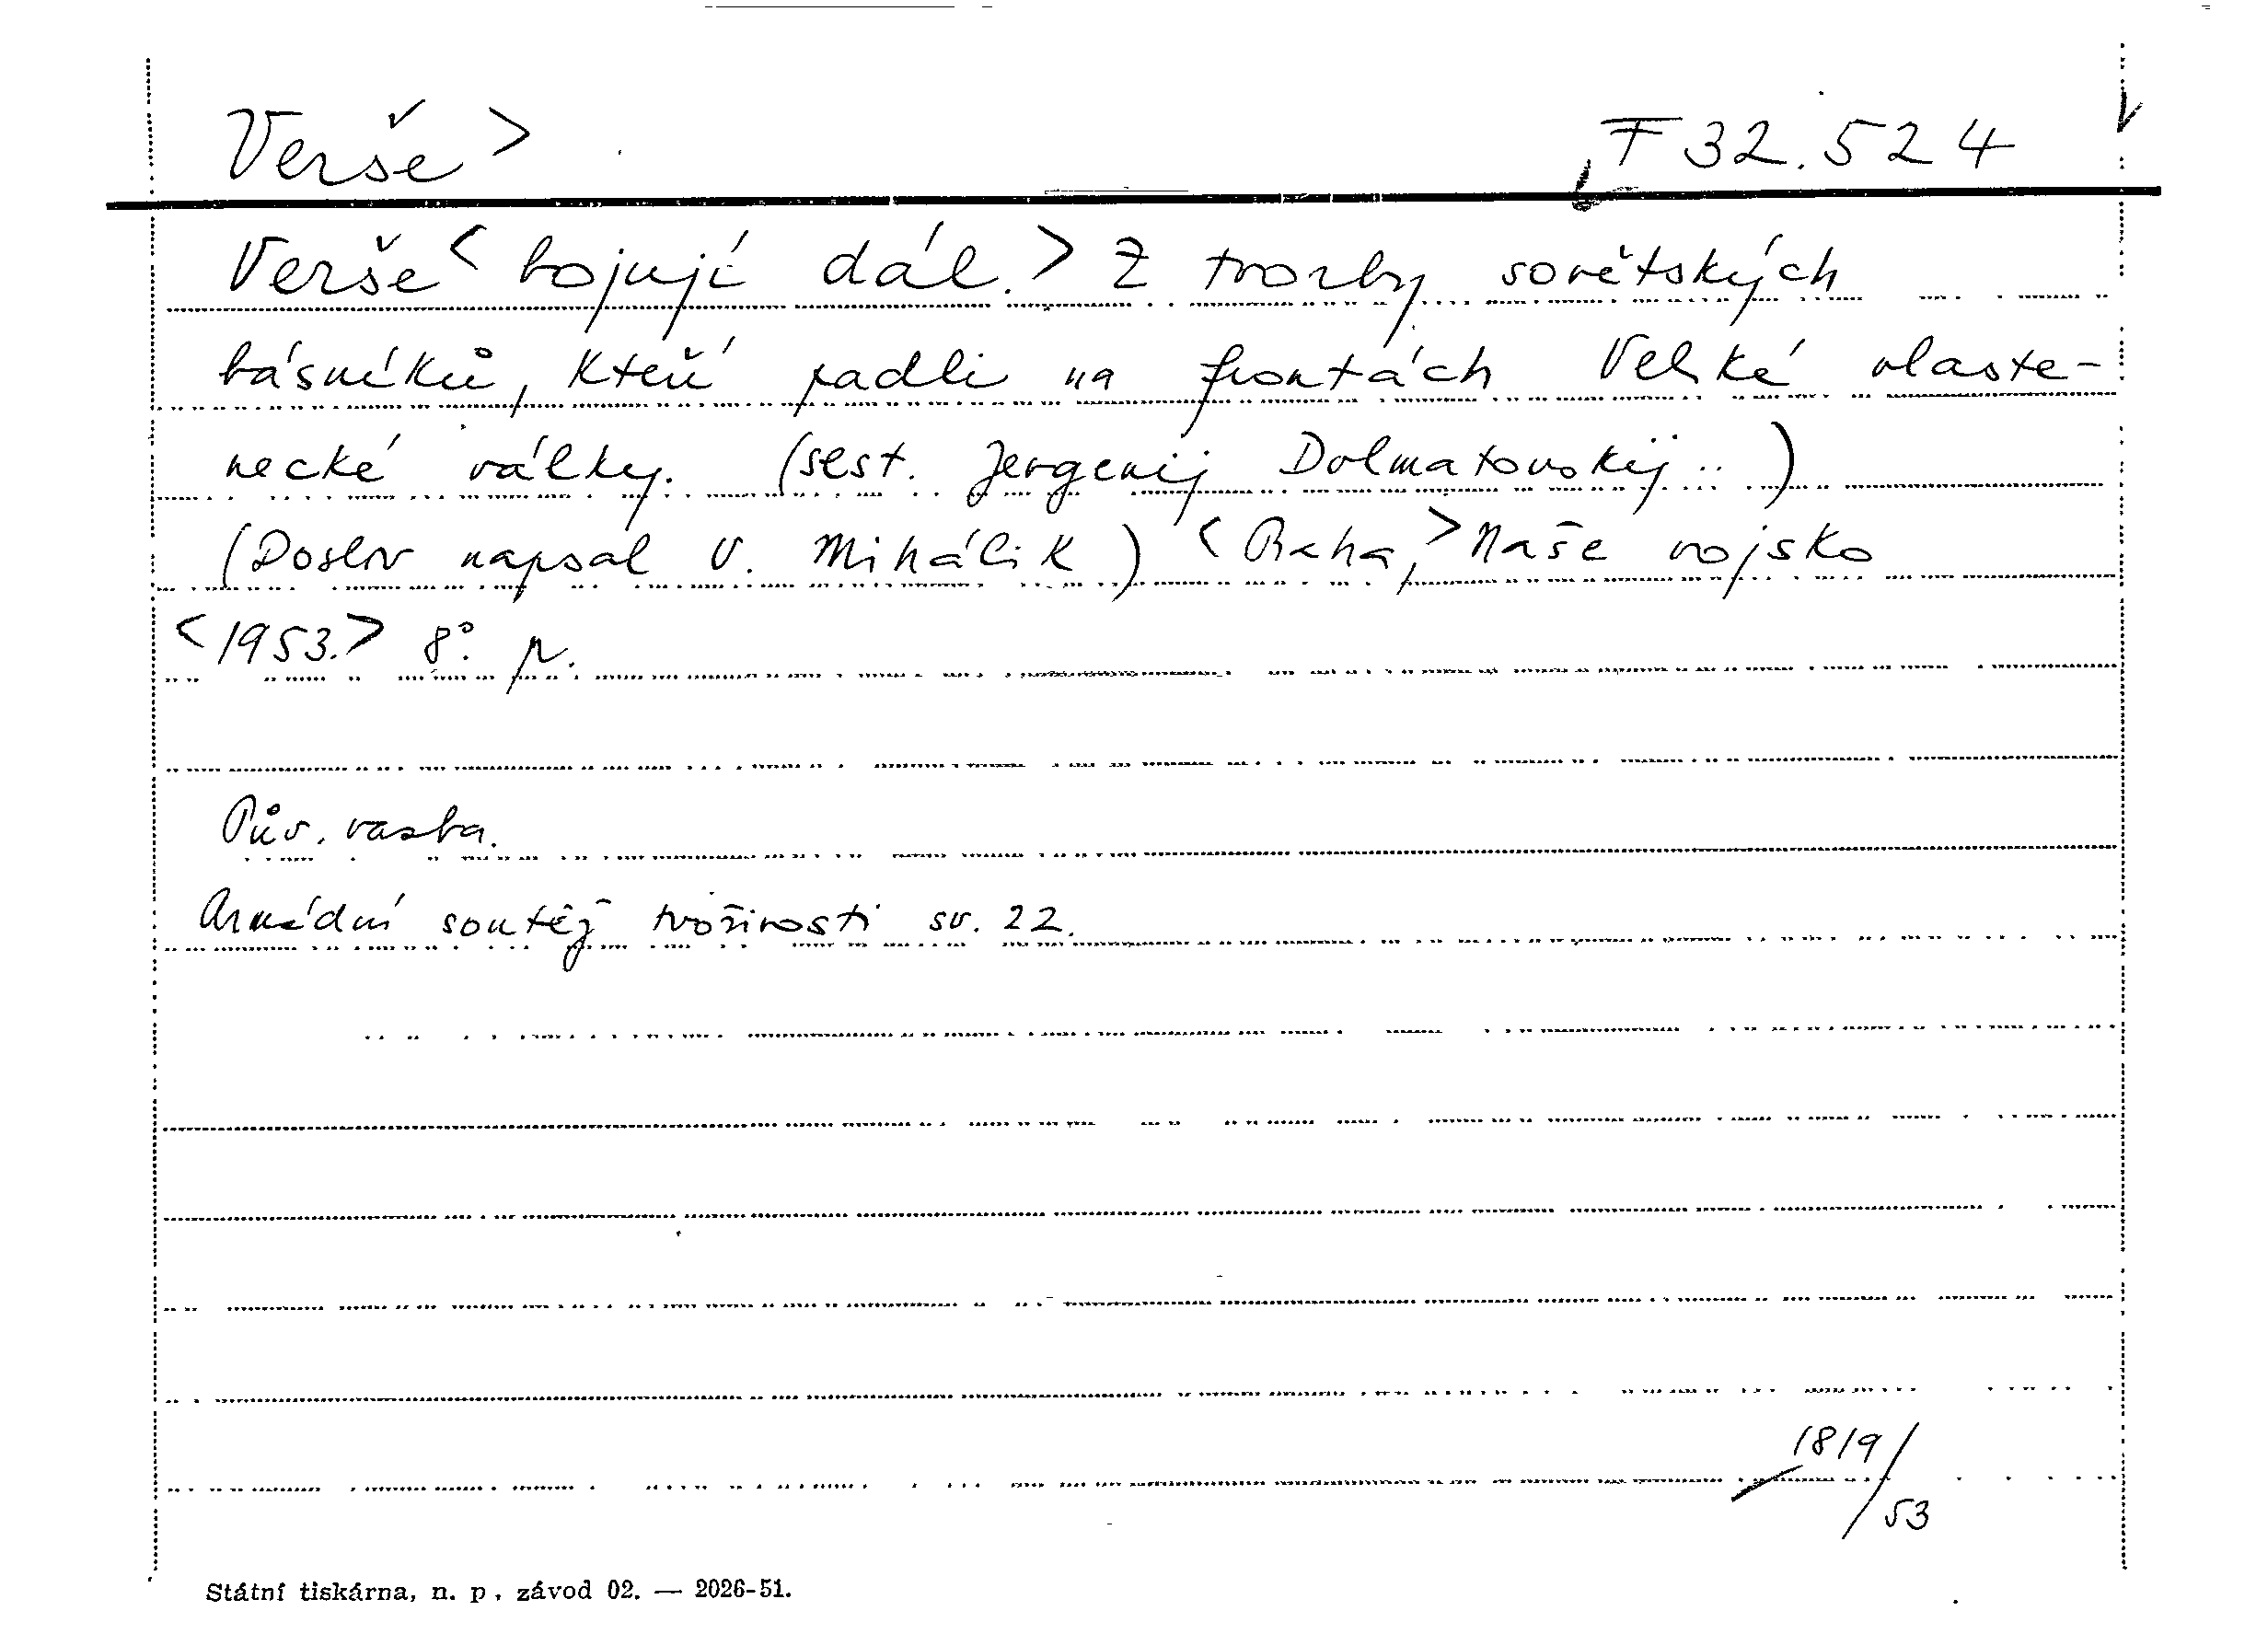 Verše > F 32.524
Verše < bojují dál. > Z tvorby sovětských
básníků, kteří padli na frontách Velké vlaste-
necké války. (sest. Jevgenij Dolmatovskij..)
(Doslov napsal V. Mihálik) < Praha, > Naše vojsko
< 1953. > 8°. p.
Pův. vazba.
Armádní soutěž tvořivosti sv. 22.
1819/
53
Státní tiskárna, n. p., závod 02. — 2026-51.